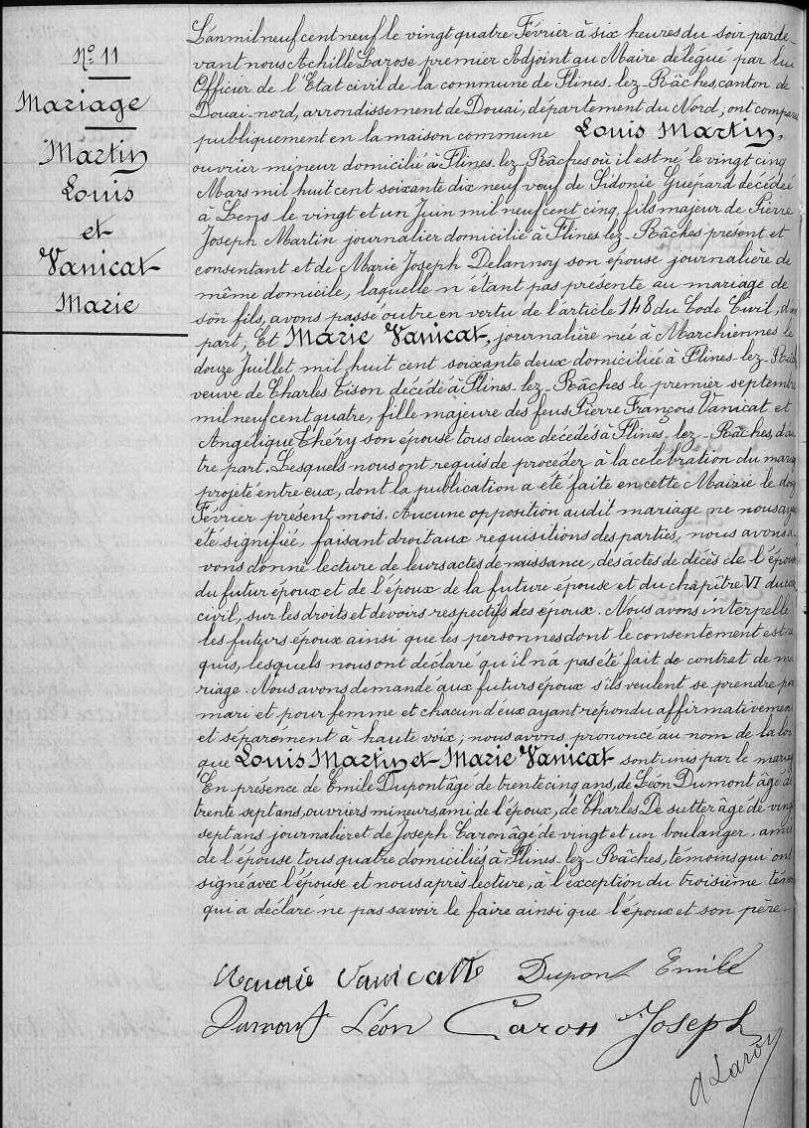 Nº 11
Mariage
Martin
Louis
et
Vanicat
Marie
L'an mil neuf cent neuf le vingt quatre Février à six heures du soir par de-
vant nous Achille Larose premier Adjoint au Maire délégué par lui
Officier de l'Etat civil de la commune de Flines-lez-Râches, canton de
Douai-nord, arrondissement de Douai, département du Nord, ont comparu
publiquement en la maison commune Louis Martin,
ouvrier mineur domicilié à Flines-lez-Râches où il est né le vingt cinq
Mars mil huit cent soixante dix neuf veuf de Sidonie Guépard décédée
à Lens le vingt et un Juin mil neuf cent cinq, fils majeur de Pierre
Joseph Martin journalier domicilié à Flines-lez-Râches présent et
consentant et de Marie Joseph Delannoy son épouse journalière de
même domicile, laquelle n'étant pas présente au mariage de
son fils, avons passé outre en vertu de l'article 148 du Code Civil, d'une
part; Et Marie Vanicat, journalière née à Marchiennes le
douze Juillet mil huit cent soixante deux domiciliée à Flines-lez-Râch
veuve de Charles Tison décédé à Flines-lez-Râches le premier septembre
mil neuf cent quatre, fille majeure des feus Pierre François Vanicat et
Angélique Théry son épouse tous deux décédés à Flines-lez-Râches, d'au
tre part. Lesquels nous ont requis de procéder à la célébration du mariag
projeté entre eux, dont la publication a été faite en cette Mairie le
Février présent mois. Aucune opposition audit mariage ne nous aya
été signifiée, faisant droit aux requisitions des parties, nous avons a-
vons donné lecture de leurs actes de naissance, des actes de décès de l'épouse
du futur époux et de l'époux de la future épouse et du chapître VI du code
civil, sur les droits et devoirs respectifs des époux. Nous avons interpellé
les futurs époux ainsi que les personnes dont le consentement est re
quis, lesquels nous ont déclaré qu'il n'a pas été fait de contrat de ma
riage. Nous avons demandé aux futurs époux s'ils veulent se prendre pour
mari et pour femme et chacun d'eux ayant répondu affirmativement
et séparément à haute voix; nous avons prononcé au nom de la loi
que Louis Martin et Marie Vanicat sont unis par le mariag
En présence de Emile Dupont âgé de trente cinq ans, de Léon Dumont âgé de
trente sept ans, ouvriers mineurs, ami de l'époux, de Charles De sutter âgé de vingt
sept ans journalier et de Joseph Caron âgé de vingt et un boulanger, amis
de l'épouse tous quatre domiciliés à Flines-lez-Râches, témoins qui ont
signé avec l'épouse et nous après lecture, à l'exception du troisième tém
qui a déclaré ne pas savoir le faire ainsi que l'époux et son père.
Marie Vanicatte Dupont Emile
Dumont Léon Caron Joseph
A Larose